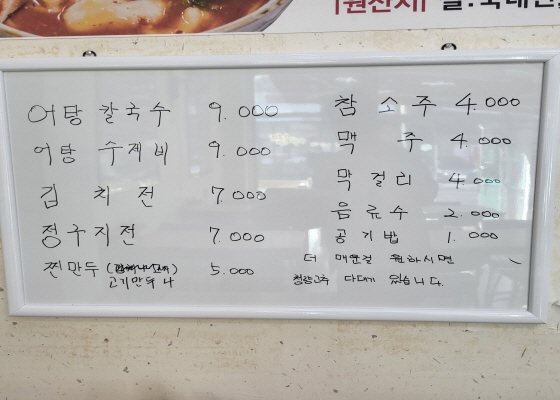 [원산지] 쌀:국내산
어탕 칼국수 9.000
어탕 수제비 9.000
김치전 7.000
정구지전 7.000
찐만두 5.000
고기만두
참소주 4.000
맥주 4.000
막걸리 4.000
음료수 2.000
공기밥 1.000
더 매운걸 원하시면
청량고추 다대기 있습니다.